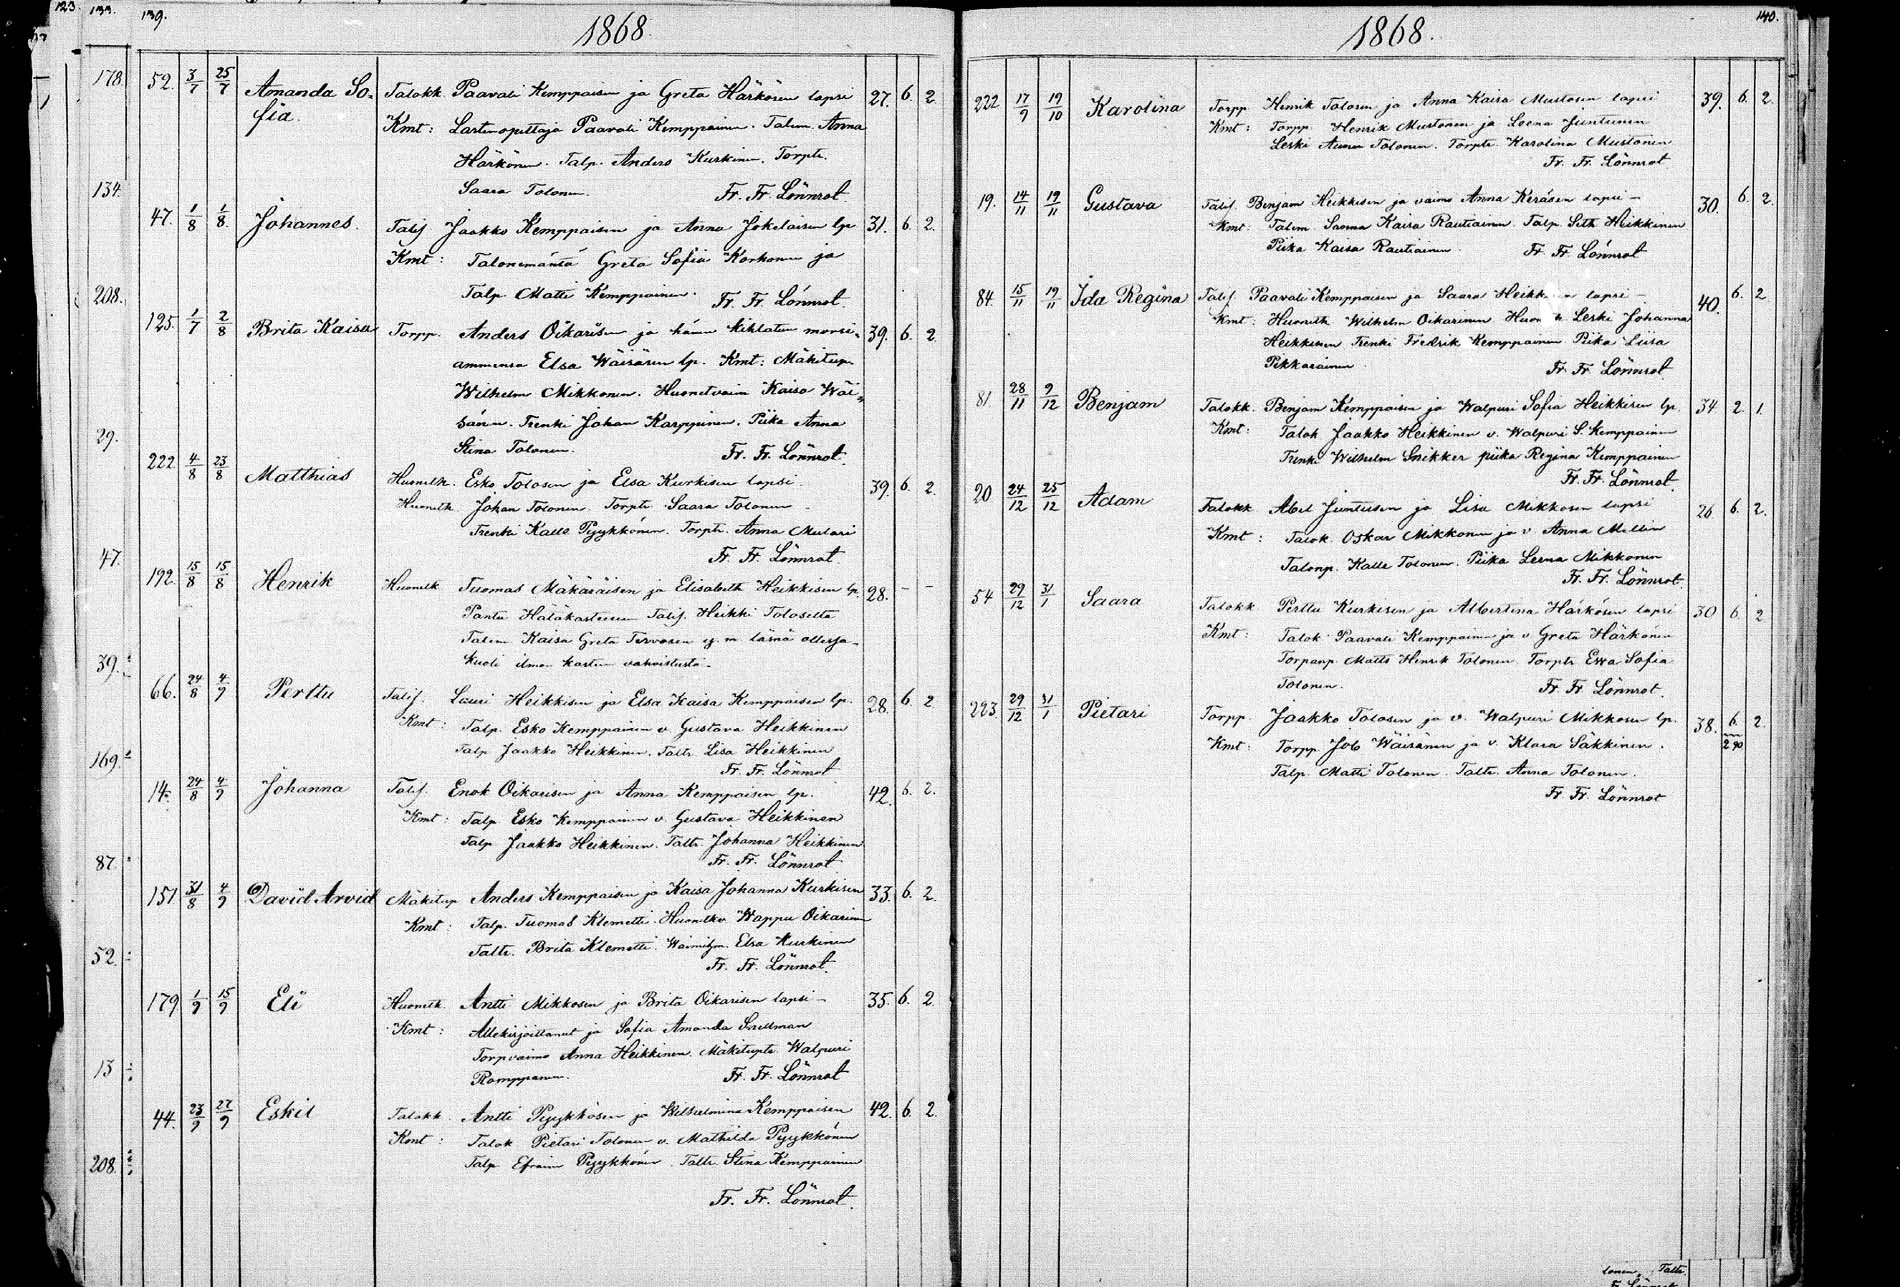 123.
133.
139.
1868.
178
52. 3/7 25/7 Amanda So- Talokk. Paavali Kemppaisen ja Greta Härkösen lapsi 27. 6. 2.
fia. Kmt: Lastenopettaja Paavali Kemppainen. Talem. Anna
Härkönen. Talp. Anders Kurkinen. Torptr.
Saara Tolonen. Fr. Fr. Lönnrot.
134.
47. 1/8 1/8. Johannes. Talij Jaakko Kemppaisen ja Anna Jokelaisen lp 31. 6. 2.
Kmt: Talonemäntä Greta Sofia Korhonen ja
Talp. Matti Kemppainen. Fr. Fr. Lönnrot.
208.
125. 1/7 2/8 Brita Kaisa Torpp. Anders Oikarisen ja hänen kihlatun morsi- 39. 6. 2
ammensa Elsa Wäisäsen lp. Kmt: Mäkitup.
Wilhelm Mikkonen. Huonetvaim Kaisa Wäi-
sänen. Trenki Johan Karppinen. Piika Anna
Stina Tolonen. Fr. Fr. Lönnrot.
29.
222. 4/8 23/8 Matthias Huonetk. Esko Tolosen ja Elsa Kurkisen lapsi. 39. 6. 2.
Huonetk Johan Tolonen. Torptr Saara Tolonen
Trenki Kalle Pyykkönen. Torptr. Anna Mulari
Fr. Fr. Lönnrot.
47.
192. 15/8 15/8 Henrik Huonetk Tuomas Mäkäräisen ja Elisabeth Heikkisen lp. 28. - -
Pantu Hätäkasteesen Talij. Heikki Toloselta
Talem Kaisa Greta Tervosen y. m läsnä ollessa-
kuoli ilman kasteen vahvistusta.
39.
66. 24/8 4/9 Perttu Talij. Lauri Heikkisen ja Elsa Kaisa Kemppaisen lp. 28. 6. 2
Kmt: Talp. Esko Kemppainen v. Gustava Heikkinen
Talp Jaakko Heikkinen. Taltr. Lisa Heikkinen
Fr. Fr. Lönnrot
169.
14. 24/8 4/9 Johanna Talij. Enok Oikarisen ja Anna Kemppaisen lp. 42. 6. 2.
Kmt: Talp Esko Kemppainen v. Gustava Heikkinen
Talp Jaakko Heikkinen. Taltr. Johanna Heikkinen
Fr. Fr. Lönnrot
87.
151 31/8 4/9 David Arvid Mäkitup Anders Kemppaisen ja Kaisa Johanna Kurkisen 33. 6. 2.
Kmt: Talp. Tuomas Klemetti. Huonetkv. Wappu Oikarinen
Taltr. Brita Klemetti. Elsa Kurkinen
Fr. Fr. Lönnrot.
52.
179 1/9 15/9 Eli Huonetk. Antti Mikkosen ja Brita Oikarisen lapsi - 35. 6. 2.
Kmt: Allekirjoittanut ja Sofia Amanda Snellman
Torpvaimo Anna Heikkinen. Mäkituptr. Walpuri
Romppainen. Fr. Fr. Lönnrot
13
44. 23/9 27/9 Eskil Talokk. Antti Pyykkösen ja Wilhelmina Kemppaisen 42. 6. 2
Kmt: Talok Pietari Tolonen v. Mathilda Pyykkönen
Talp Efraim Pyykkönen. Taltr. Stina Kemppainen
208.
Fr. Fr. Lönnrot.
140.
1868.
222 17/9 19/10 Karolina Torpp Henrik Tolosen ja Anna Kaisa Mustosen lapsi 39. 6. 2.
Kmt: Torpp. Henrik Mustonen ja Leena Juntunen
Leski Anna Tolonen. Torptr. Karolina Mustonen
Fr. Fr. Lönnrot
19. 14/11 19/11 Gustava Talij. Benjam Heikkisen ja vaimo Anna Keräsen lapsi - 30. 6. 2.
Kmt: Talem. Sanna Kaisa Rautiainen Talp. Seth Heikkinen
Piika Kaisa Rautiainen. Fr. Fr. Lönnrot
84. 15/11 19/11 Ida Regina Talij Paavali Kemppaisen ja Saara Heikkisen lapsi - 40. 6. 2
Kmt: Huonetk Wilhelm Oikarinen. Leski Johanna
Heikkinen Trenki Fredrik Kemppainen Piika Liisa
Pikkarainen. Fr. Fr. Lönnrot.
81. 28/11 9/12 Benjam Talokk. Benjam Kemppaisen ja Walpuri Sofia Heikkisen lp. 34. 2. 1.
Kmt: Talok Jaakko Heikkinen v. Walpuri S. Kemppainen
Trenki Wilhelm Snikker piika Regina Kemppainen
Fr. Fr. Lönnrot.
20 24/12 25/12 Adam Talokk Abel Juntusen ja Lisa Mikkosen lapsi 26 6. 2.
Kmt: Talok. Oskar Mikkonen ja v Anna Mellin
Talonp. Kalle Tolonen. Piika Leena Mikkonen
Fr. Fr. Lönnrot
54 29/12 31/1 Saara Talokk Perttu Kurkisen ja Albertina Härkösen lapsi 30 6. 2
Kmt: Talok Paavali Kemppainen ja v Greta Härkönen
Torpanp Matts Henrik Tolonen. Torptr Ewa Sofia
Tolonen. Fr. Fr Lönnrot.
223. 29/12 31/1 Pietari Torpp. Jaakko Tolosen ja v. Walpuri Mikkosen lp. 38. 6. 2.
2 90
Kmt: Torpp. Job Wäisänen ja v. Klara Säkkinen.
Talp Matti Tolonen. Taltr. Anna Tolonen.
Fr. Fr. Lönnrot
lonen. Taltr.